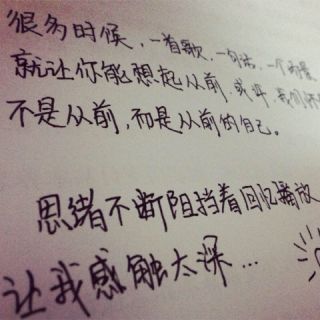 很多时候，一首歌，一句话，一个场景
就让你能想起从前，或许，我们怀
不是从前，而是从前的自己。
思绪不断阻挡着回忆播放
让我感触太深...